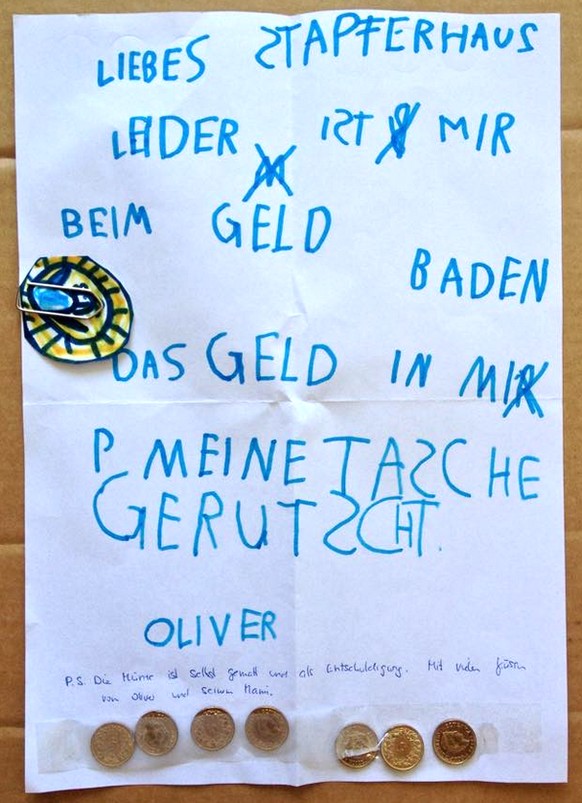 LIEBES STAPFERHAUS
LEIDER IST MIR
BEIM GELD
BADEN
DAS GELD IN MI
P MEINE TASCHE
GERUTSCHT.
OLIVER
P.S. Die Münze ist selbst gemalt und als Entschuldigung. Mit vielen Grüssen
von Oliver und seinem Mami.